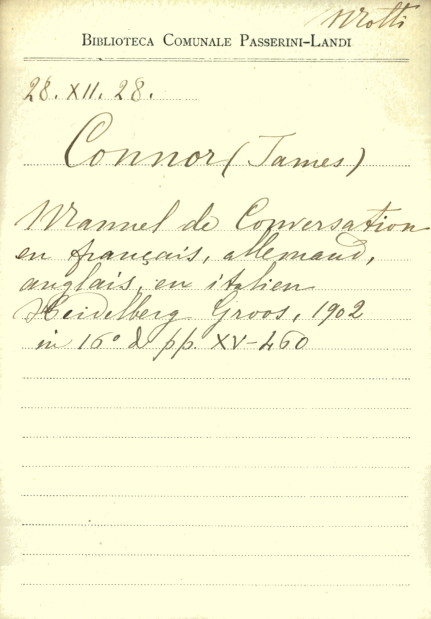 Motti
BIBLIOTECA COMUNALE PASSERINI-LANDI
28. XII. 28.
Connor (James)
Manuel de Conversation
en français, allemand,
anglais, en italien
Heidelberg Groos, 1902
in 16° d pp. XV-460